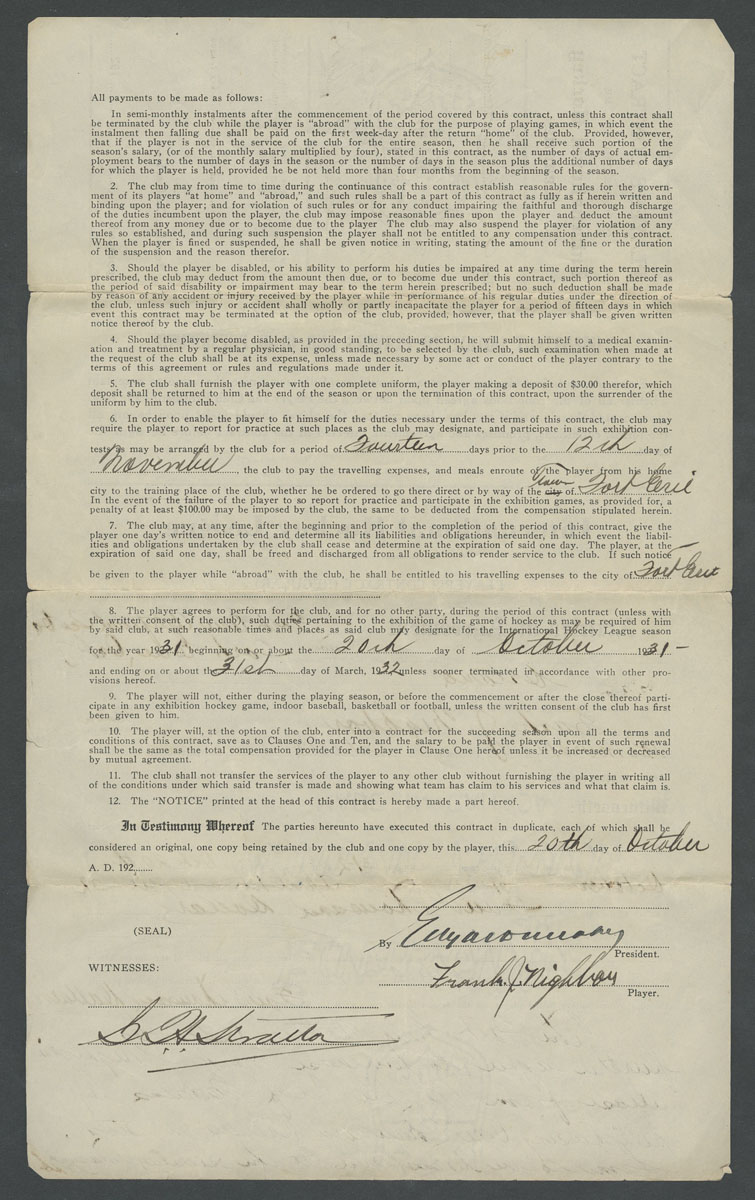 All payments to be made as follows:
In semi-monthly instalments after the commencement of the period covered by this contract, unless this contract shall
be terminated by the club while the player is "abroad" with the club for the purpose of playing games, in which event the
instalment then falling due shall be paid on the first week-day after the return "home" of the club. Provided, however,
that if the player is not in the service of the club for the entire season, then he shall receive such portion of the
season's salary, (or of the monthly salary multiplied by four), stated in this contract, as the number of days of actual em-
ployment bears to the number of days in the season or the number of days in the season plus the additional number of days
for which the player is held, provided he be not held more than four months from the beginning of the season.
2. The club may from time to time during the continuance of this contract establish reasonable rules for the govern-
ment of its players "at home" and "abroad," and such rules shall be a part of this contract as fully as if herein written and
binding upon the player; and for violation of such rules or for any conduct impairing the faithful and thorough discharge
of the duties incumbent upon the player, the club may impose reasonable fines upon the player and deduct the amount
thereof from any money due or to become due to the player The club may also suspend the player for violation of any
rules so established, and during such suspension the player shall not be entitled to any compensation under this contract.
When the player is fined or suspended, he shall be given notice in writing, stating the amount of the fine or the duration
of the suspension and the reason therefor.
3. Should the player be disabled, or his ability to perform his duties be impaired at any time during the term herein
prescribed, the club may deduct from the amount then due, or to become due under this contract, such portion thereof as
the period of said disability or impairment may bear to the term herein prescribed; but no such deduction shall be made
by reason of any accident or injury received by the player while in performance of his regular duties under the direction of
the club, unless such injury or accident shall wholly or partly incapacitate the player for a period of fifteen days in which
event this contract may be terminated at the option of the club, provided; however, that the player shall be given written
notice thereof by the club.
4. Should the player become disabled, as provided in the preceding section, he will submit himself to a medical examin-
ation and treatment by a regular physician, in good standing, to be selected by the club, such examination when made at
the request of the club shall be at its expense, unless made necessary by some act or conduct of the player contrary to the
terms of this agreement or rules and regulations made under it.
5. The club shall furnish the player with one complete uniform, the player making a deposit of $30.00 therefor, which
deposit shall be returned to him at the end of the season or upon the termination of this contract, upon the surrender of the
uniform by him to the club.
6. In order to enable the player to fit himself for the duties necessary under the terms of this contract, the club may
require the player to report for practice at such places as the club may designate, and participate in such exhibition con-
tests as may be arranged by the club for a period of Fourteen days prior to the 12th day of
November, the club to pay the travelling expenses, and meals enroute of the player from his home
city to the training place of the club, whether he be ordered to go there direct or by way of the city of Town Fort Erie
In the event of the failure of the player to so report for practice and participate in the exhibition games, as provided for, a
penalty of at least $100.00 may be imposed by the club, the same to be deducted from the compensation stipulated herein.
7. The club may, at any time, after the beginning and prior to the completion of the period of this contract, give the
player one day's written notice to end and determine all its liabilities and obligations hereunder, in which event the liabil-
ities and obligations undertaken by the club shall cease and determine at the expiration of said one day. The player, at the
expiration of said one day, shall be freed and discharged from all obligations to render service to the club. If such notice
be given to the player while "abroad" with the club, he shall be entitled to his travelling expenses to the city of Fort Erie
8. The player agrees to perform for the club, and for no other party, during the period of this contract (unless with
the written consent of the club), such duties pertaining to the exhibition of the game of hockey as may be required of him
by said club, at such reasonable times and places as said club may designate for the International Hockey League season
for the year 1931 beginning on or about the 20th day of October 1931-
and ending on or about the 31st day of March, 1932 unless sooner terminated in accordance with other pro-
visions hereof.
9. The player will not, either during the playing season, or before the commencement or after the close thereof parti-
cipate in any exhibition hockey game, indoor baseball, basketball or football, unless the written consent of the club has first
been given to him.
10. The player will, at the option of the club, enter into a contract for the succeeding season upon all the terms and
conditions of this contract, save as to Clauses One and Ten, and the salary to be paid the player in event of such renewal
shall be the same as the total compensation provided for the player in Clause One hereof unless it be increased or decreased
by mutual agreement.
11. The club shall not transfer the services of the player to any other club without furnishing the player in writing all
of the conditions under which said transfer is made and showing what team has claim to his services and what that claim is.
12. The "NOTICE" printed at the head of this contract is hereby made a part hereof.
In Testimony Whereof The parties hereunto have executed this contract in duplicate, each of which shall be
considered an original, one copy being retained by the club and one copy by the player, this 20th day of October
A. D. 192
(SEAL)
By
President.
WITNESSES:
Frank J. Nighbor
Player.